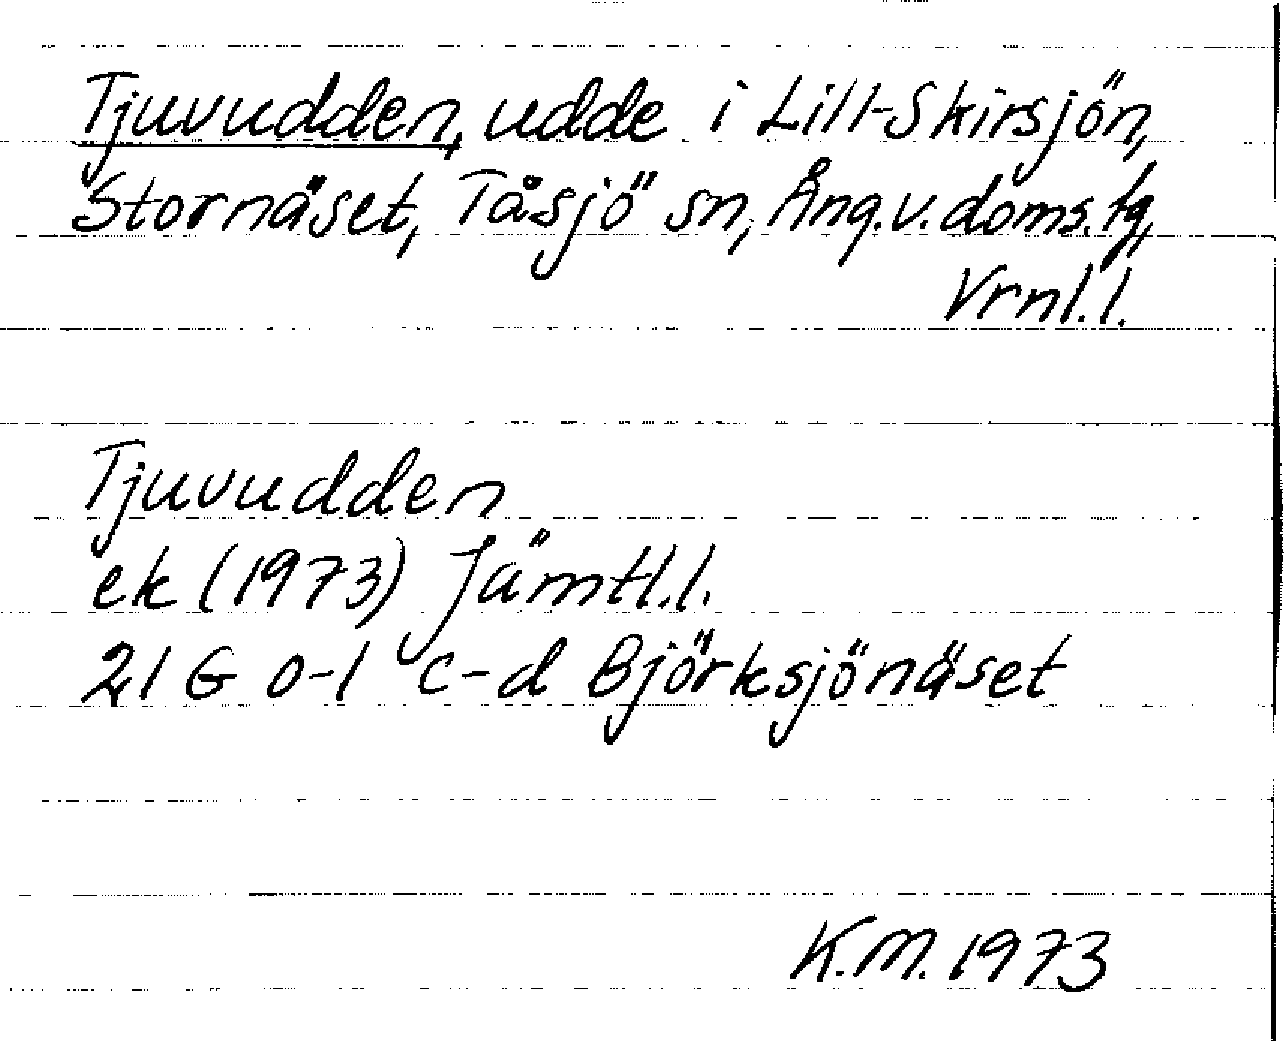 Tjuvudden, udde i Lill-Skirsjön,
Stornäset, Tåsjö sn, Ång.v.doms.tg,
Vrnl.l.
Tjuvudden
ek (1973) Jämtl.l.
21 G 0-1 c-d Björksjönäset
K.M. 1973